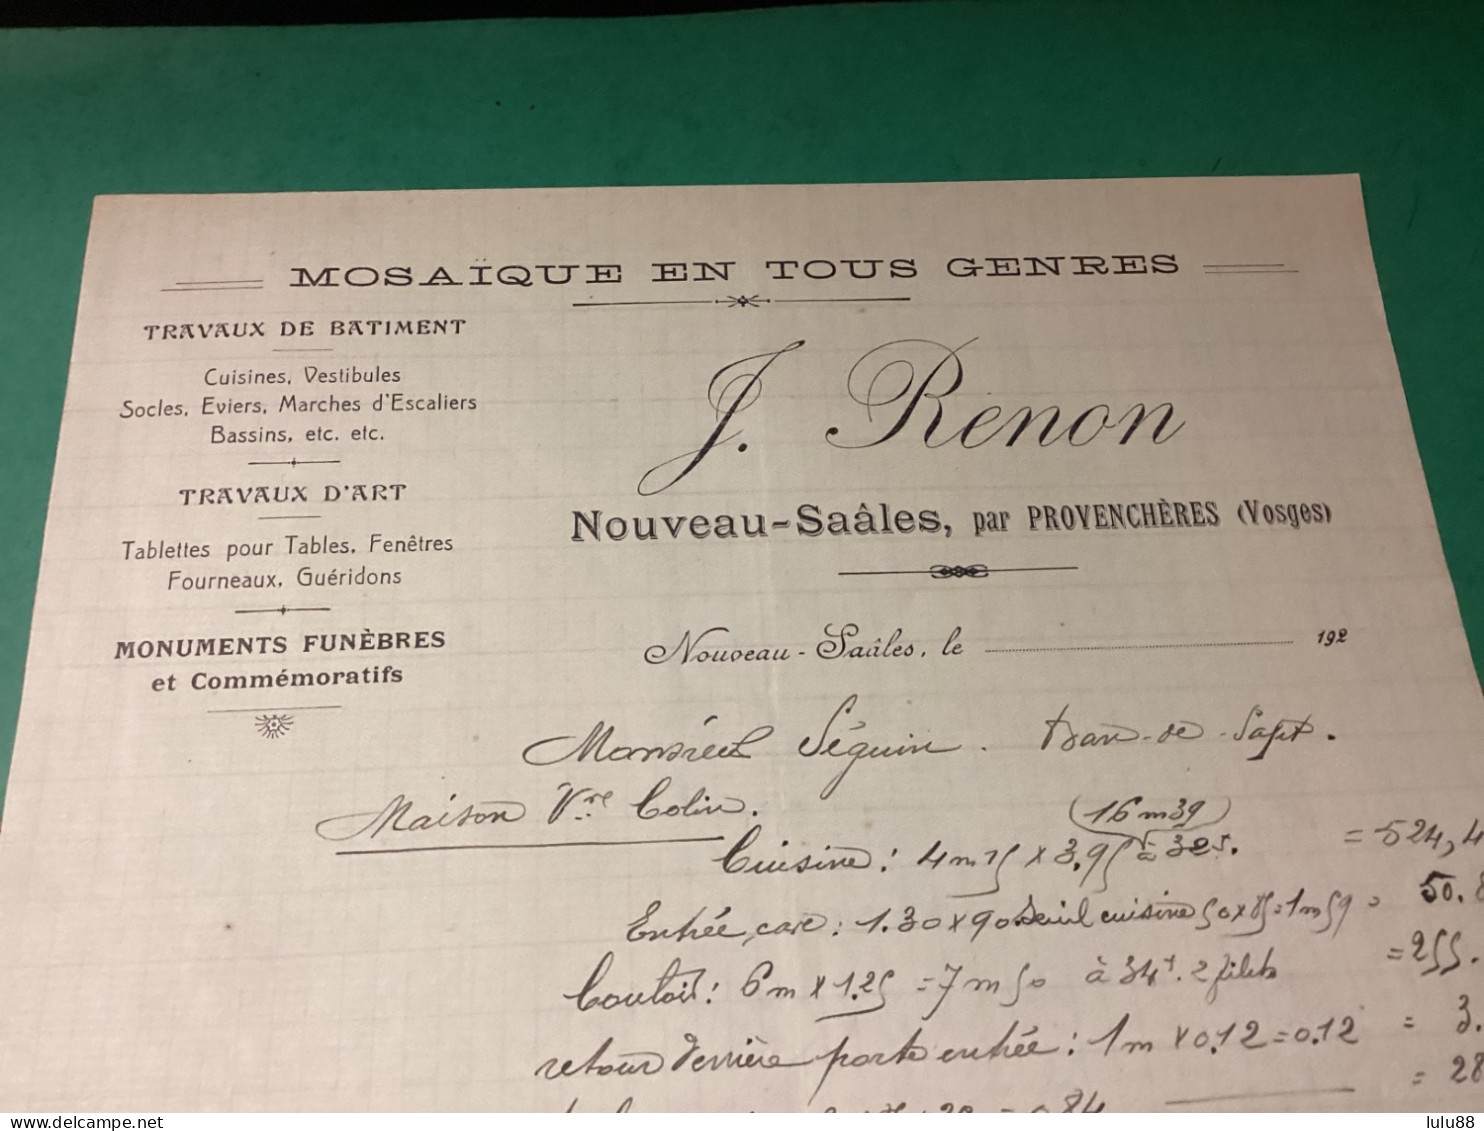 MOSAÏQUE EN TOUS GENRES
TRAVAUX DE BATIMENT
Cuisines, Vestibules
Socles, Eviers, Marches d'Escaliers
Bassins, etc. etc.
TRAVAUX D'ART
Tablettes pour Tables, Fenêtres
Fourneaux, Guéridons
MONUMENTS FUNÈBRES
et Commémoratifs
J. Renon
Nouveau-Saâles, par PROVENCHÈRES (Vosges)
Nouveau-Saâles, le 192
Monsieur Séguin. Ban-de-Sapt.
Maison Vve Colin.
(16m39)
Cuisine: 4m15 x 3.95 à 32f. = 524,4
Entrée, cave: 1.30 x 90 Seuil cuisine 50 x 85 = 1m59 = 50.8
Couloir: 6m x 1.25 = 7m50 à 34f. 2 filets = 255.
retour derrière porte entrée: 1m x 0.12 = 0.12 = 3.
= 0.84 = 28
delcampe.net
lulu88